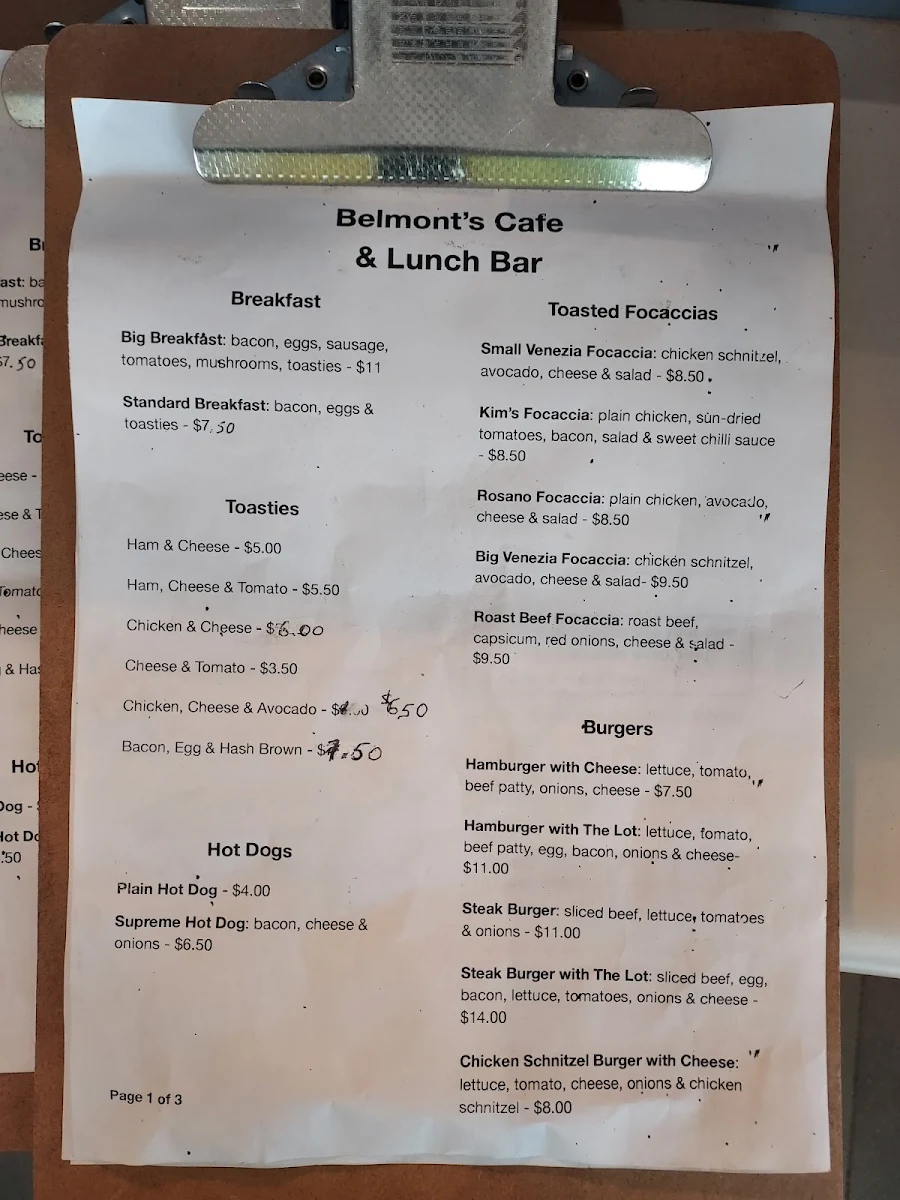 Belmont's Cafe
& Lunch Bar
Breakfast
Big Breakfast: bacon, eggs, sausage,
tomatoes, mushrooms, toasties - $11
Standard Breakfast: bacon, eggs &
toasties - $7.50
Toasties
Ham & Cheese - $5.00
Ham, Cheese & Tomato - $5.50
Chicken & Cheese - $6.00
Cheese & Tomato - $3.50
Chicken, Cheese & Avocado - $6.50
Bacon, Egg & Hash Brown - $7.50
Hot Dogs
Plain Hot Dog - $4.00
Supreme Hot Dog: bacon, cheese &
onions - $6.50
Page 1 of 3
Toasted Focaccias
Small Venezia Focaccia: chicken schnitzel,
avocado, cheese & salad - $8.50
Kim's Focaccia: plain chicken, sun-dried
tomatoes, bacon, salad & sweet chilli sauce
- $8.50
Rosano Focaccia: plain chicken, avocado,
cheese & salad - $8.50
Big Venezia Focaccia: chicken schnitzel,
avocado, cheese & salad- $9.50
Roast Beef Focaccia: roast beef,
capsicum, red onions, cheese & salad -
$9.50
Burgers
Hamburger with Cheese: lettuce, tomato,
beef patty, onions, cheese - $7.50
Hamburger with The Lot: lettuce, tomato,
beef patty, egg, bacon, onions & cheese-
$11.00
Steak Burger: sliced beef, lettuce, tomatoes
& onions - $11.00
Steak Burger with The Lot: sliced beef, egg,
bacon, lettuce, tomatoes, onions & cheese -
$14.00
Chicken Schnitzel Burger with Cheese:
lettuce, tomato, cheese, onions & chicken
schnitzel - $8.00